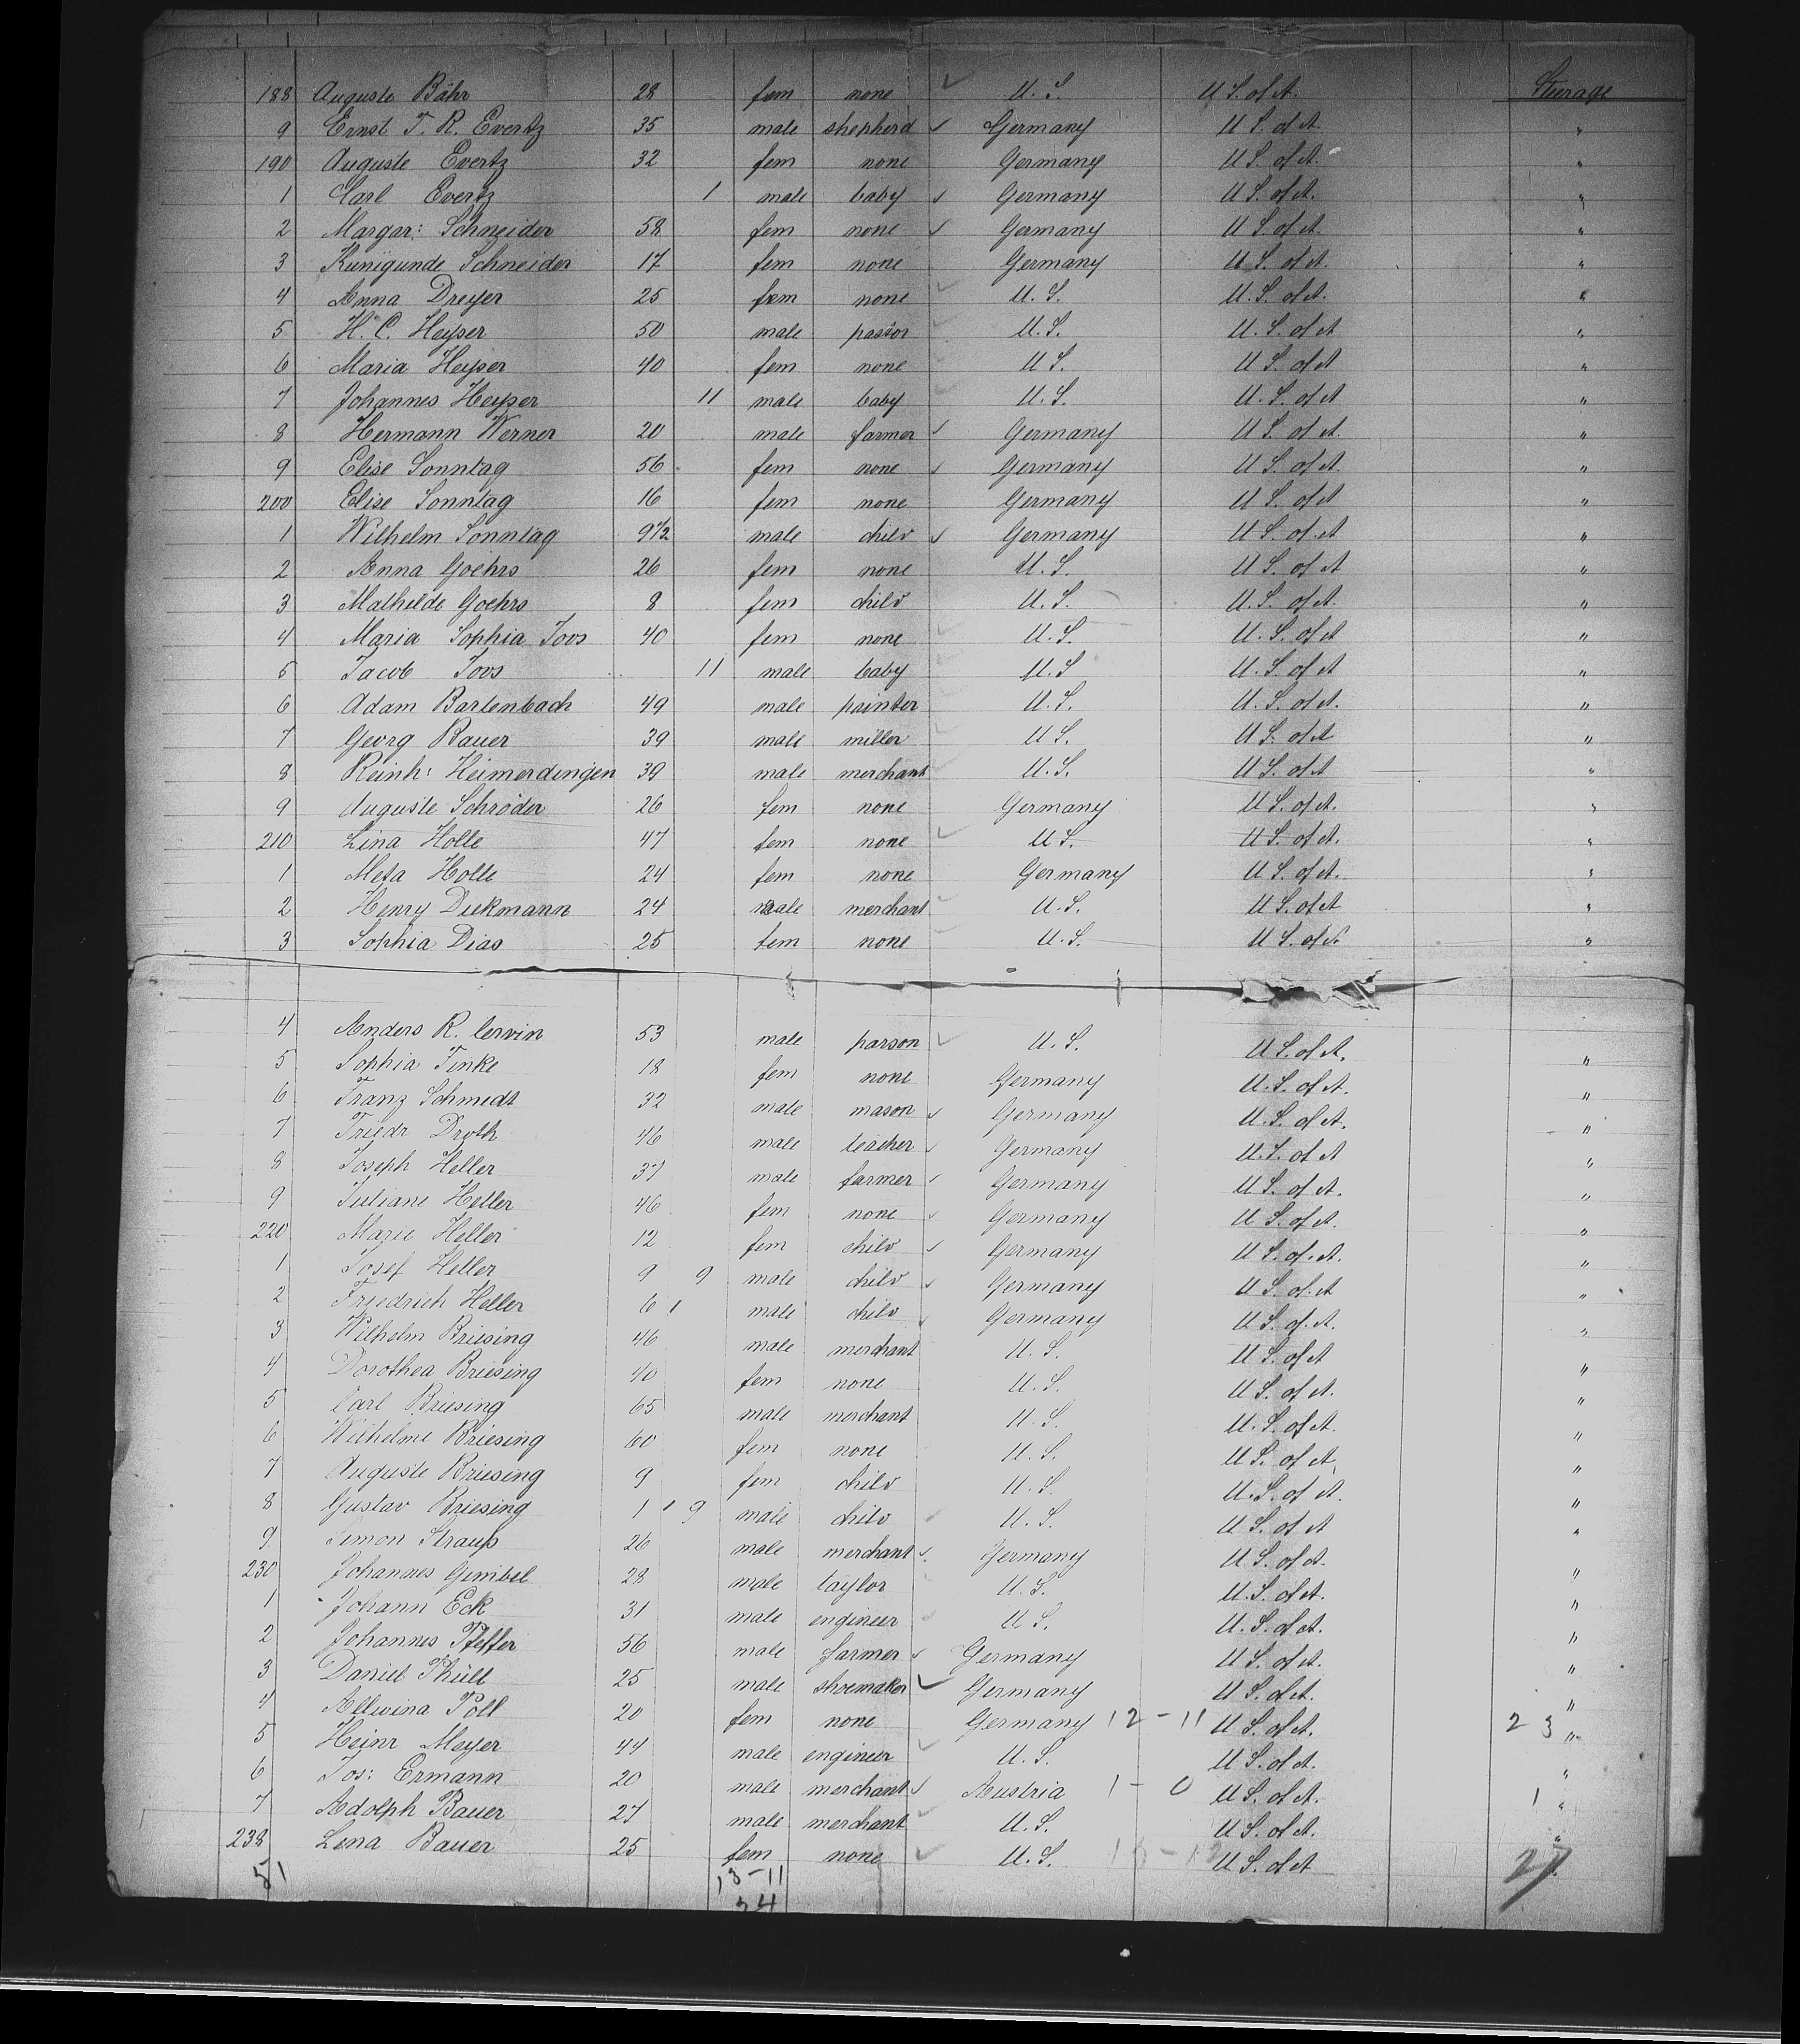 188 Auguste Bähr 28 fem none ✓ U.S. U.S. of A. Steerage
9 Ernst F. R. Evertz 35 male shepherd ✓ Germany U.S. of A. "
190 Auguste Evertz 32 fem none Germany U.S. of A. "
1 Carl Evertz 1 male baby ✓ Germany U.S. of A. "
2 Margar: Schneider 58 fem none ✓ Germany U.S. of A. "
3 Kunigunde Schneider 17 fem none Germany U.S. of A. "
4 Anna Dreyer 25 fem none ✓ U.S. U.S. of A. "
5 H. C. Heyser 50 male pastor U.S. U.S. of A "
6 Maria Heyser 40 fem none U.S. U.S. of A "
7 Johannes Heyser 11 male baby U.S. U.S. of A "
8 Hermann Werner 20 male farmer ✓ Germany U.S. of A. "
9 Elise Sonntag 56 fem none ✓ Germany U.S. of A "
200 Elise Sonntag 16 fem none Germany U.S. of A "
1 Wilhelm Sonntag 9 1/2 male child ✓ Germany U.S. of A "
2 Anna Goehrs 26 fem none U.S. U.S. of A "
3 Mathilde Goehrs 8 fem child U.S. U.S. of A. "
4 Maria Sophia Joos 40 fem none U.S. U.S. of A "
5 Jacob Joos 11 male baby U.S U.S. of A "
6 Adam Bartenbach 49 male painter U.S. U.S. of A. "
7 Georg Bauer 39 male miller U.S. U.S. of A "
8 Reinh: Heimerdingen 39 male merchant U.S. U.S. of A "
9 Auguste Schröder 26 fem none Germany U.S. of A. "
210 Lina Holte 47 fem none ✓ U.S. U.S. of A. "
1 Meta Holte 24 fem none Germany U.S. of A. "
2 Henry Diekmann 24 male merchant U.S. U.S. of A "
3 Sophia Dias 25 fem none U.S. U.S. of A "
4 Anders R. 53 male parson ✓ U.S. U.S. of A. "
5 Sophia Finke 18 fem none Germany U.S. of A. "
6 Franz Schmidt 32 male mason ✓ Germany U.S. of A. "
7 Friedr Droth 46 male teacher ✓ Germany U.S. of A "
8 Joseph Heller 37 male farmer ✓ Germany U.S. of A. "
9 Juliane Heller 46 fem none ✓ Germany U.S. of A. "
220 Marie Heller 12 fem child ✓ Germany U.S. of A. "
1 Josef Heller 9 9 male child ✓ Germany U.S. of A "
2 Friedrich Heller 6 male child ✓ Germany U.S. of A. "
3 Wilhelm Briesing 46 male merchant U.S. U.S. of A "
4 Dorothea Briesing 40 fem none U.S. U.S. of A. "
5 Carl Briesing 65 male merchant U.S. U.S. of A. "
6 Wilhelme Briesing 60 fem none U.S. U.S. of A. "
7 Auguste Briesing 9 fem child U.S. U.S. of A. "
8 Gustav Briesing 1 9 male child U.S. U.S. of A "
9 Simon Strauß 26 male merchant ✓ Germany U.S. of A. "
230 Johannes Gimbel 28 male taylor U.S. U.S. of A. "
1 Johann Eck 31 male engineer U.S. U.S. of A. "
2 Johannes Pfeffer 56 male farmer ✓ Germany U.S. of A. "
3 Daniel Thüll 25 male shoemaker ✓ Germany U.S. of A. "
4 Allwina Poll 20 fem none Germany 12 - 11 U.S. of A. 23 "
5 Heinr Meyer 44 male engineer ✓ U.S. U.S. of A. "
6 Jos: Ermann 20 male merchant ✓ Austria 1 - 0 U.S. of A. 1 "
7 Adolph Bauer 27 male merchant ✓ U.S. U.S. of A. "
238 Lena Bauer 25 fem none ✓ U.S. U.S. of A
51 13-11 27
24